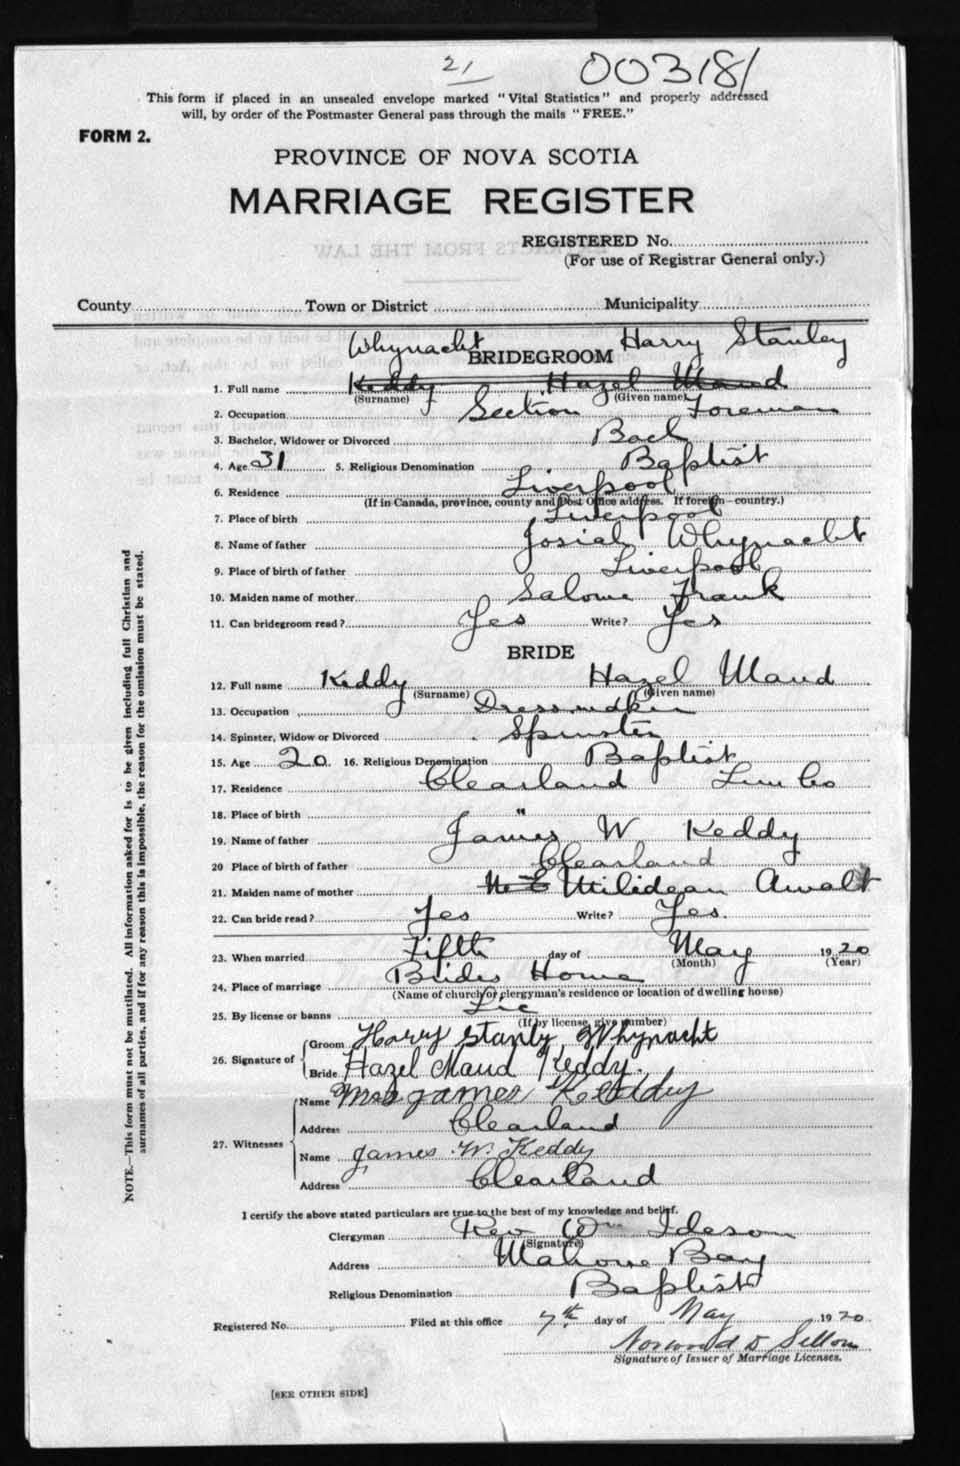 21 003181
This form if placed in an unsealed envelope marked "Vital Statistics" and properly addressed
will, by order of the Postmaster General pass through the mails "FREE."
FORM 2.
PROVINCE OF NOVA SCOTIA
MARRIAGE REGISTER
REGISTERED No.
(For use of Registrar General only.)
County Town or District Municipality
Whynacht Harry Stanley
BRIDEGROOM
1. Full name Keddy Hazel Maud
(Surname) (Given name)
2. Occupation Section Foreman
3. Bachelor, Widower or Divorced Bach
4. Age 31 5. Religious Denomination Baptist
6. Residence Liverpool
(If in Canada, province, county and Post Office address. If foreign—country.)
7. Place of birth Liverpool
8. Name of father Josiah Whynacht
9. Place of birth of father Liverpool
10. Maiden name of mother Salome Frank
11. Can bridegroom read? Yes Write? Yes
BRIDE
12. Full name Keddy Hazel Maud
(Surname) (Given name)
13. Occupation Dressmaker
14. Spinster, Widow or Divorced Spinster
15. Age 20 16. Religious Denomination Baptist
17. Residence Clearland Lun Co
18. Place of birth "
19. Name of father James W Keddy
20 Place of birth of father Clearland
21. Maiden name of mother Milidean Awalt
22. Can bride read? Yes Write? Yes.
23. When married Fifth day of May 1920
(Month) (Year)
24. Place of marriage Brides Home
(Name of church or clergyman's residence or location of dwelling house)
25. By license or banns Lic
(If by license, give number)
26. Signature of Groom Harry Stanly Whynacht
Bride Hazel Maud Keddy.
27. Witnesses Name Mrs James Kedddy
Address Clearland
Name James W. Keddy
Address Clearland
I certify the above stated particulars are true to the best of my knowledge and belief.
Clergyman Rev Wm Ideson
(Signature)
Address Mahone Bay
Religious Denomination Baptist
Registered No. Filed at this office 7th day of May 1920
Norwood D Sellon
Signature of Issuer of Marriage Licenses.
[SEE OTHER SIDE]
NOTE.—This form must not be mutilated. All information asked for is to be given including full Christian and
surnames of all parties, and if for any reason this is impossible, the reason for the omission must be stated.